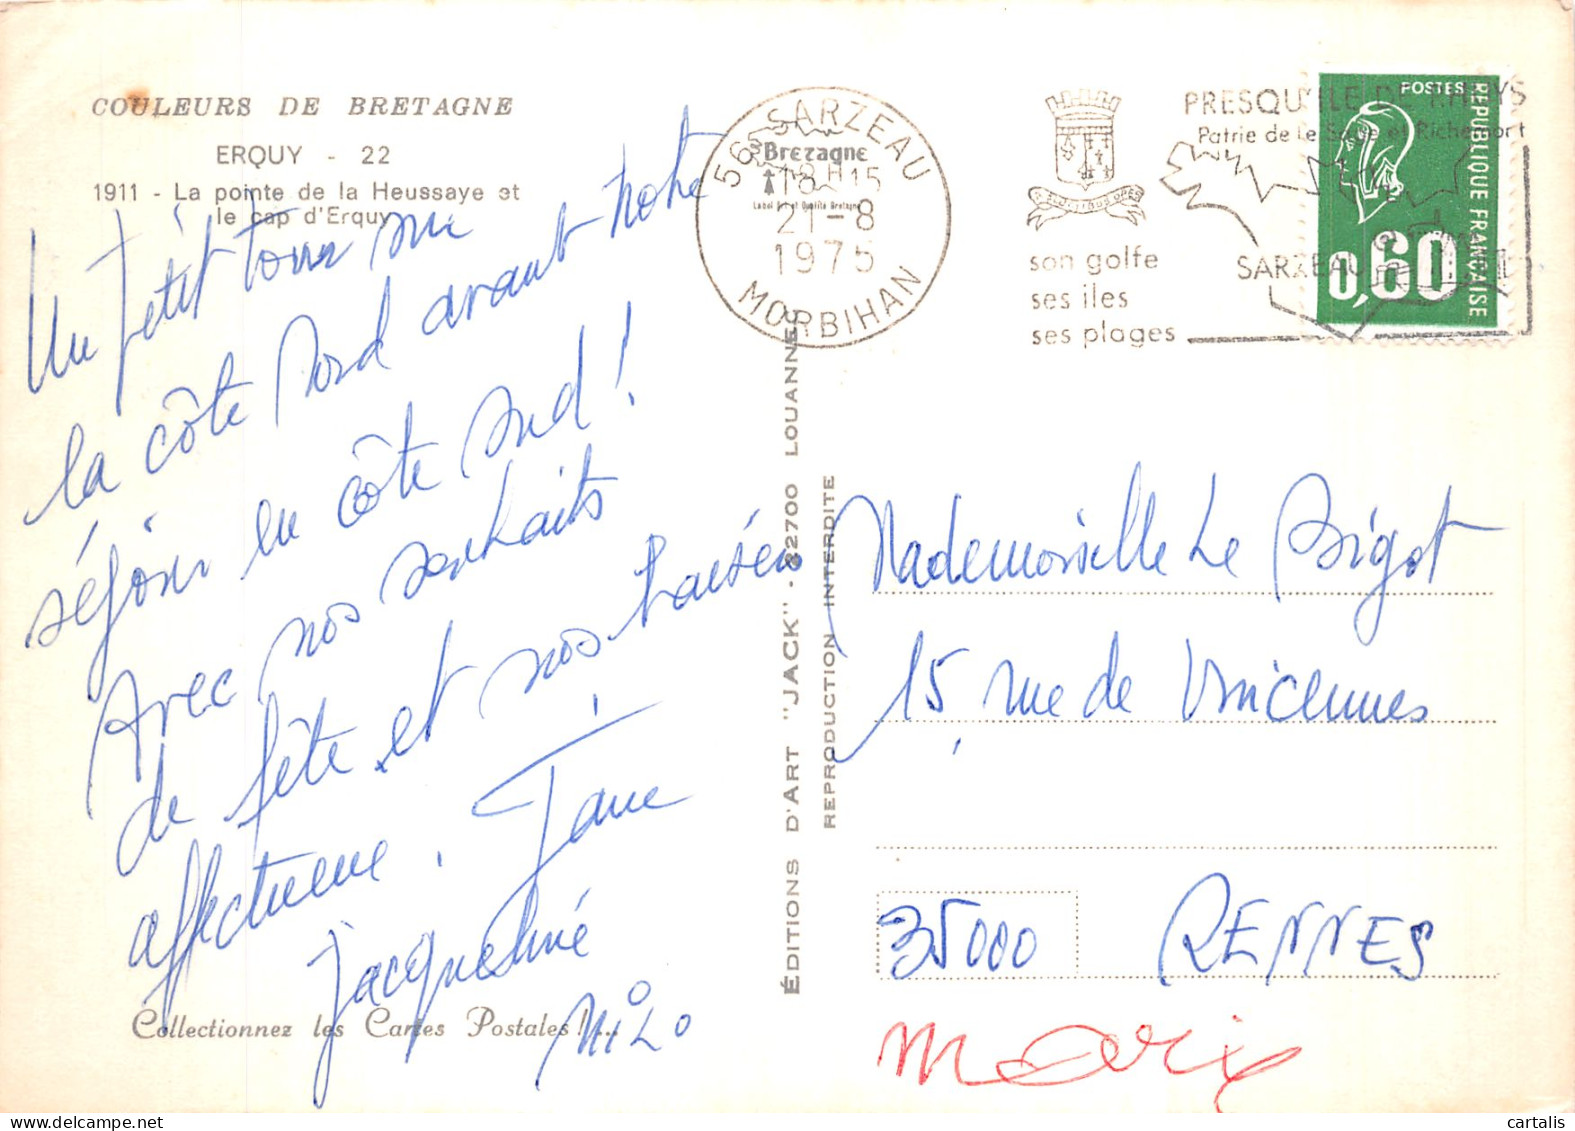 COULEURS DE BRETAGNE
ERQUY - 22
1911 - La pointe de la Heussaye et
le cap d'Erquy
Un petit tour sur
la côte Nord avant notre
séjour en côte sud !
Avec nos souhaits
de fête et nos baisers
affectueux.
Jacqueline
MiLo
Collectionnez les Cartes Postales !...
ÉDITIONS D'ART "JACK" - 22700 LOUANNEC
REPRODUCTION INTERDITE
Bretagne
Label de Qualité Bretagne
56 SARZEAU
18 H 15
21-8
1975
MORBIHAN
son golfe
ses iles
ses plages
PRESQU'ILE DE RHUYS
Patrie de Le Sage et Richemont
SARZEAU
POSTES
REPUBLIQUE FRANCAISE
0,60
Mademoiselle Le Bigot
15, rue de Vincennes
35000 RENNES